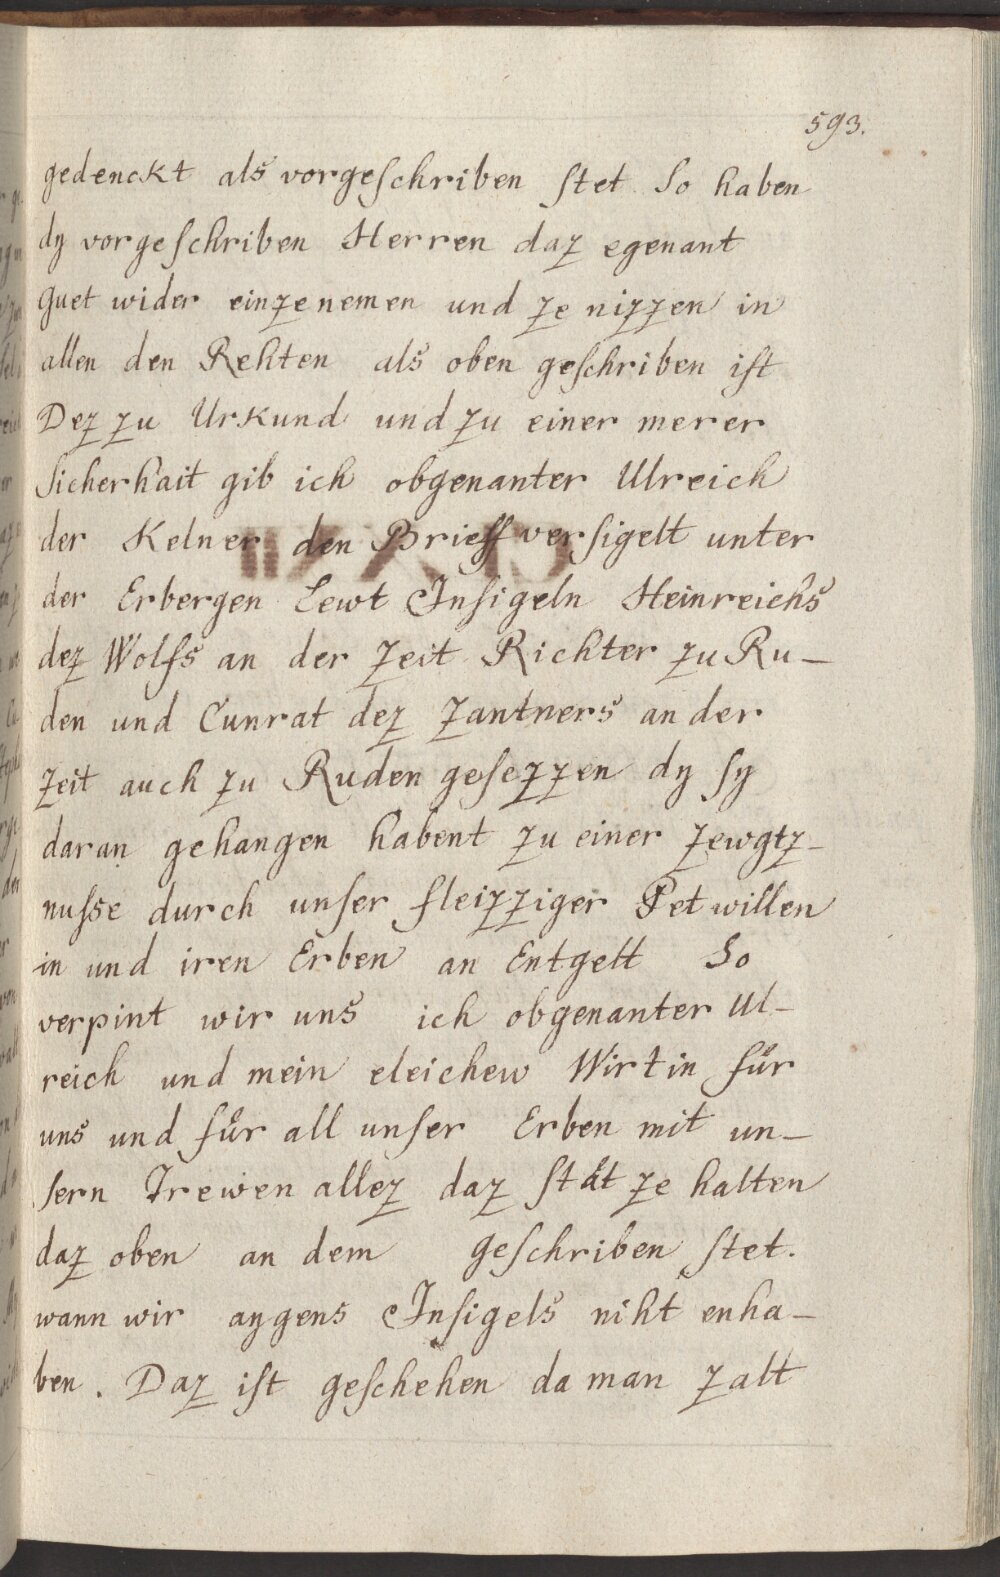 593.
gedenckt als vorgeschriben stet so haben
dÿ vorgeschriben Herren daz egenant
guet wider einzenemen und ze nizzen in
allen den Rehten als oben geschriben ist
Dez zu Urkund und zu einer merer
sicherhait gib ich obgenanter Ulreich
der Kelner den Brieff versigelt unter
der Erbergen Lewt Insigeln Heinreichs
dez Wolfs an der zeit Richter zu Ru-
den und Cunrat dez zantners an der
zeit auch zu Ruden gesezzen dÿ sÿ
daran gehangen habent zu einer zewgtz-
nusse durch unser fleizziger Pet willen
in und iren Erben an Entgelt So
verpint wir uns ich obgenanter Ul-
reich und mein eleichew Wirtin für
uns und für all unser Erben mit un-
sern Trewen allez daz stät ze halten
daz oben an dem geschriben stet.
wann wir aygens Insigels niht enha-
ben. Daz ist geschehen da man zalt